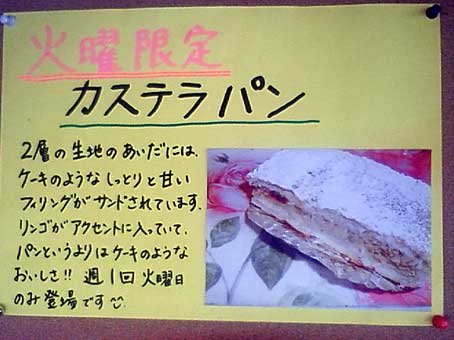 火曜限定
カステラパン
2層の生地のあいだには、
ケーキのようなしっとりと甘い
フィリングがサンドされています。
リンゴがアクセントに入っていて、
パンというよりはケーキのような
おいしさ!! 週1回火曜日
のみ登場です